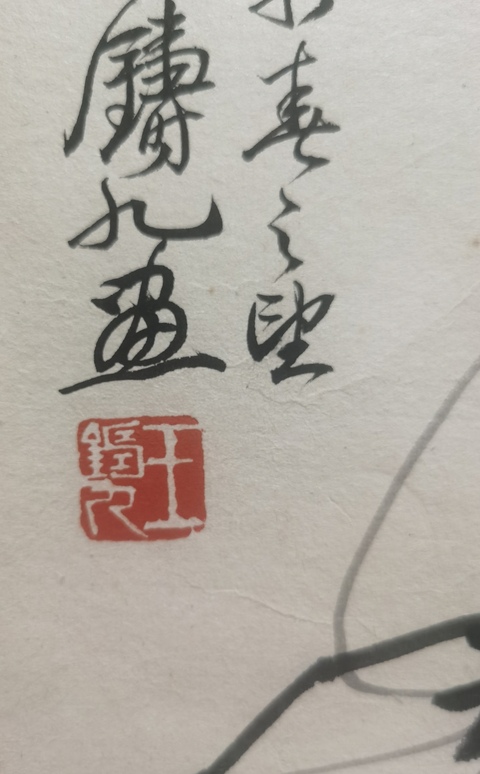 春之望
鑄九畫
王鑄九